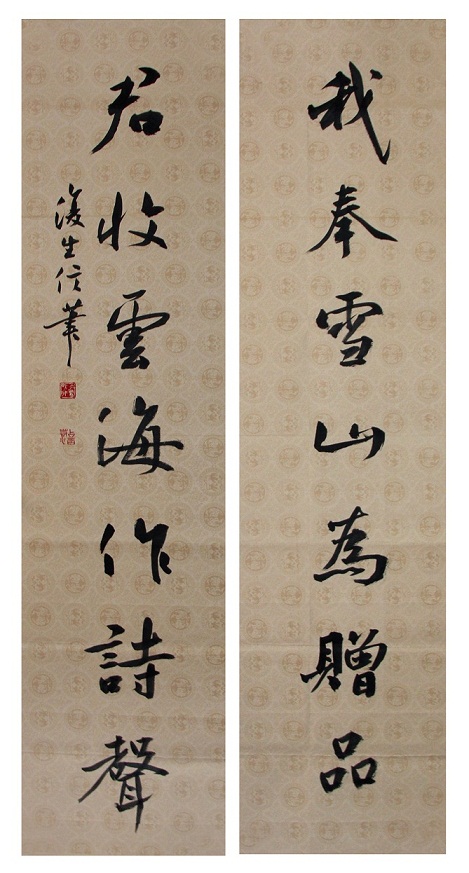 我奉雪山為贈品
君收雲海作詩聲
復生信筆